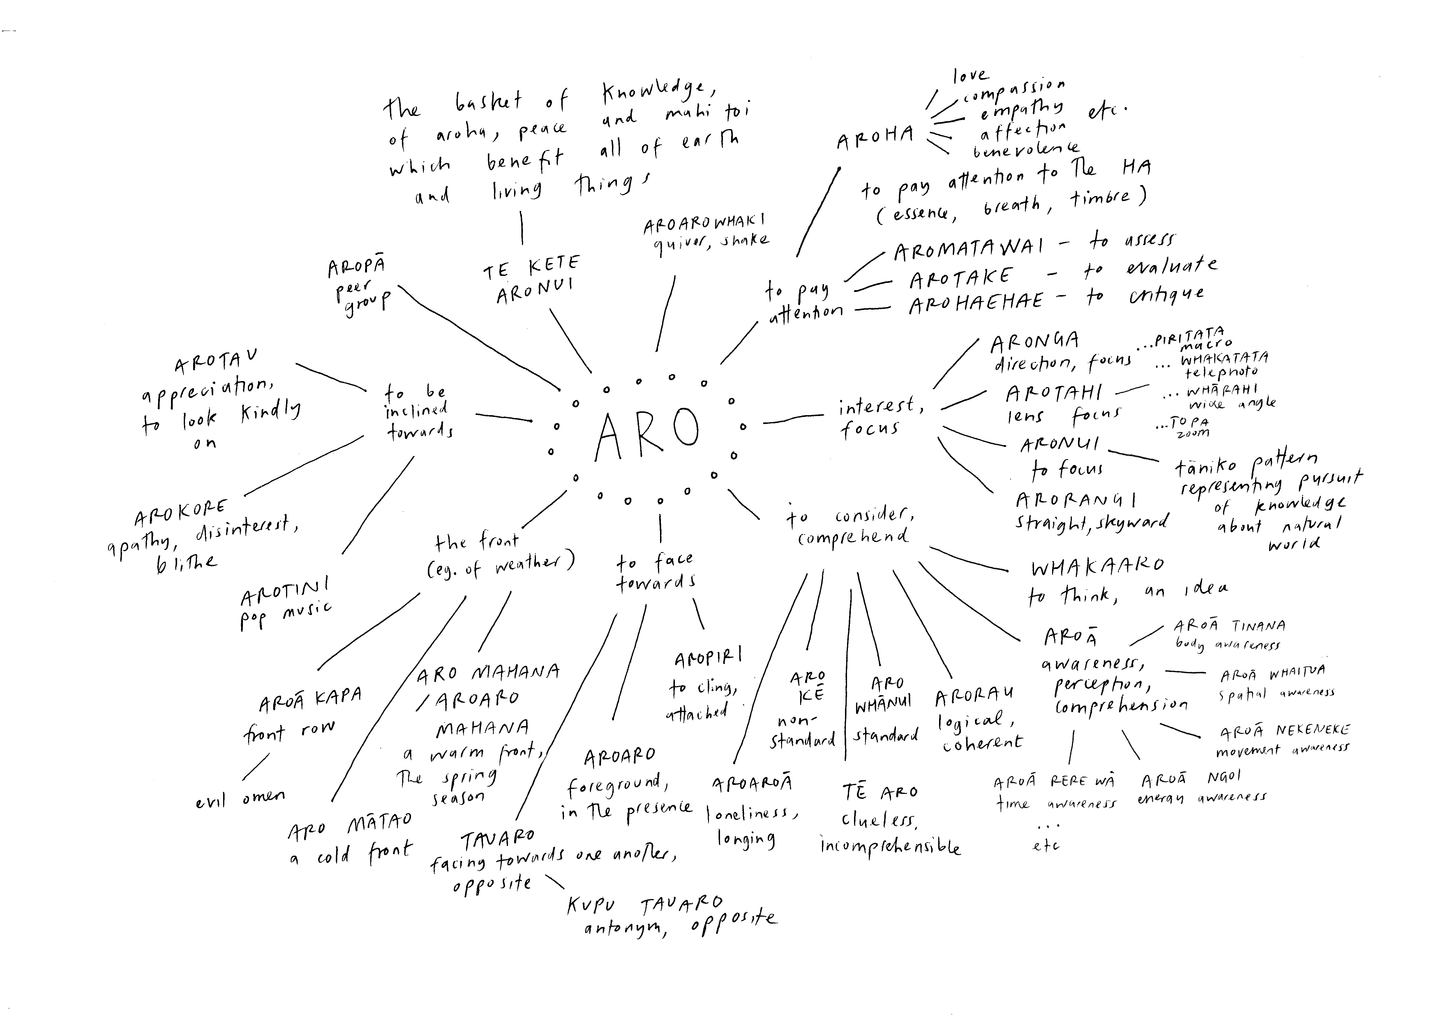 the basket of knowledge,
of aroha, peace and mahi toi
which benefit all of earth
and living things
TE KETE
ARONUI
AROPĀ
peer
group
AROAROWHAKI
quiver, shake
AROHA
love
compassion
empathy
affection
benevolence
etc.
to pay attention to the HA
(essence, breath, timbre)
to pay
attention
AROMATAWAI - to assess
AROTAKE - to evaluate
AROHAEHAE - to critique
ARO
interest,
focus
ARONGA
direction, focus
AROTAHI
lens focus
...PIRITATA
macro
... WHAKATATA
telephoto
... WHĀRAHI
wide angle
...TOPA
zoom
ARONUI
to focus
tāniko pattern
representing pursuit
of knowledge
about natural
world
ARORANGI
straight, skyward
to be
inclined
towards
AROTAU
appreciation,
to look kindly
on
AROKORE
apathy, disinterest,
blithe
AROTINI
pop music
the front
(eg. of weather)
AROĀ KAPA
front row
evil omen
ARO MĀTAO
a cold front
ARO MAHANA
/ AROARO
MAHANA
a warm front,
the spring
season
to face
towards
TAUARO
facing towards one another,
opposite
KUPU TAUARO
antonym, opposite
AROARO
foreground,
in the presence
AROPIRI
to cling,
attached
to consider,
comprehend
AROAROĀ
loneliness,
longing
ARO
KĒ
non-
standard
TĒ ARO
clueless,
incomprehensible
ARO
WHĀNUI
standard
ARORAU
logical,
coherent
WHAKAARO
to think, an idea
AROĀ
awareness,
perception,
comprehension
AROĀ TINANA
body awareness
AROĀ WHAITUA
spatial awareness
AROĀ NEKENEKE
movement awareness
AROĀ NGOI
energy awareness
AROĀ RERE WĀ
time awareness
...
etc